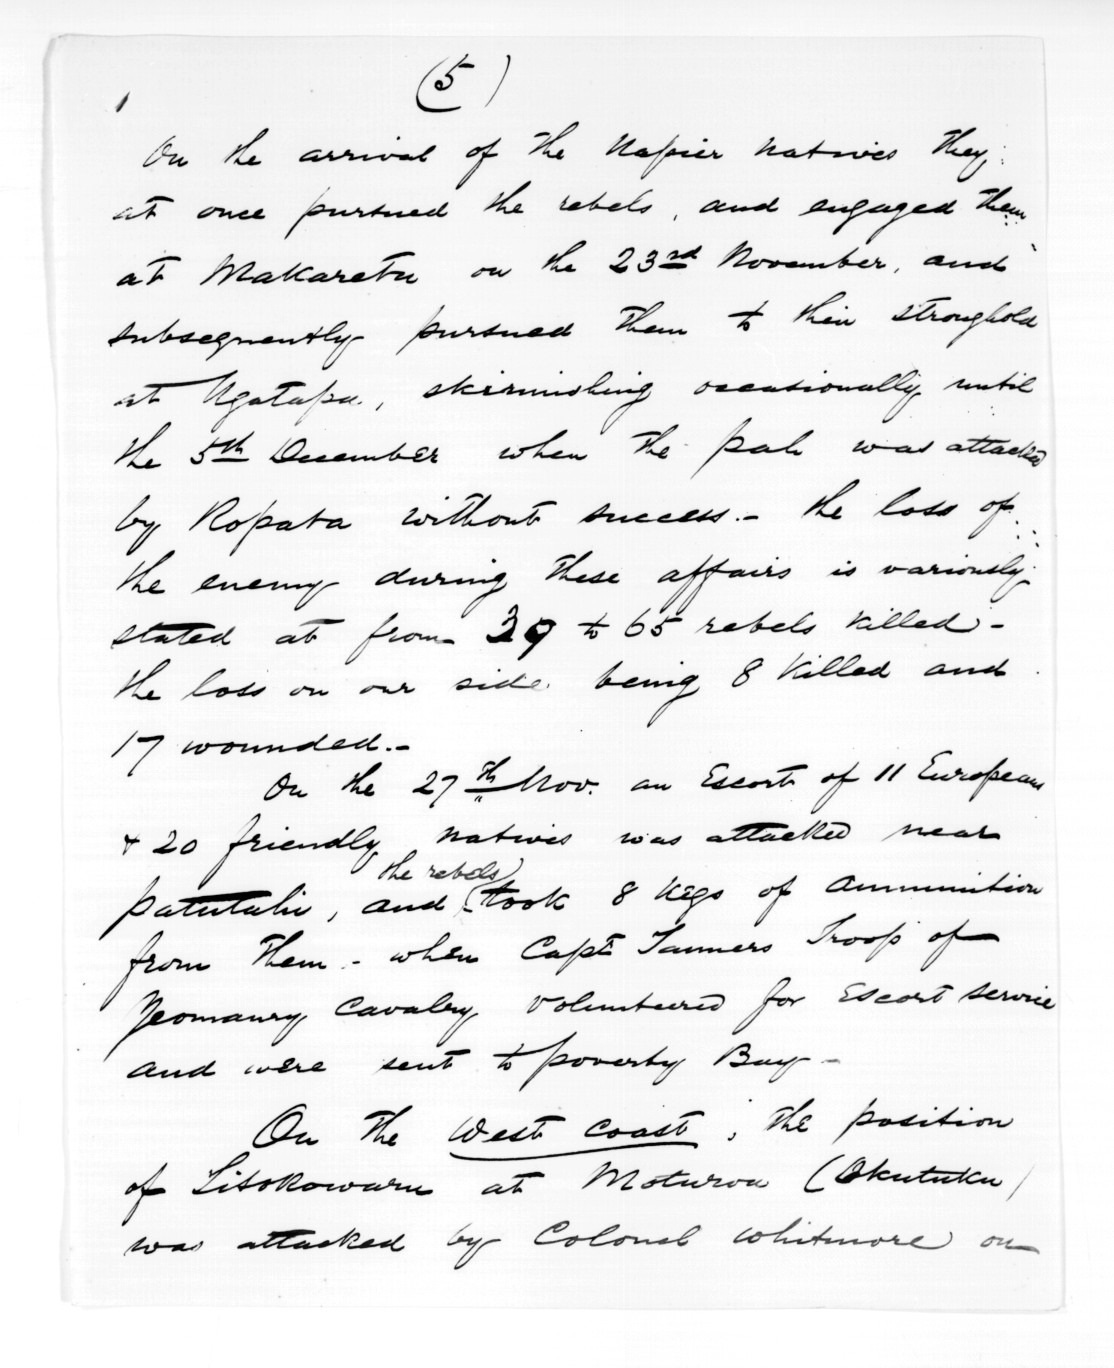 (5)
On the arrival of the Napier natives they
at once pursued the rebels, and engaged them
at Makaretu on the 23rd November, and
subsequently pursued them to their stronghold
at Ngatapa, skirmishing occasionally until
the 5th December when the pah was attacked
by Ropata without success.- the loss of
the enemy during these affairs is variously
stated at from 39 to 65 rebels killed -
the loss on our side being 8 killed and
17 wounded.-
On the 27th Nov. an Escort of 11 Europeans
+ 20 friendly natives was attacked near
patutahi, and (the rebels) took 8 kegs of ammunition
from them - when Capt Tanners Troop of
Yeomanry Cavalry volunteered for Escort service
and were sent to poverty Bay -
On the West Coast, the position
of Titokowaru at Moturoa (Okutuku)
was attacked by Colonel Whitmore on